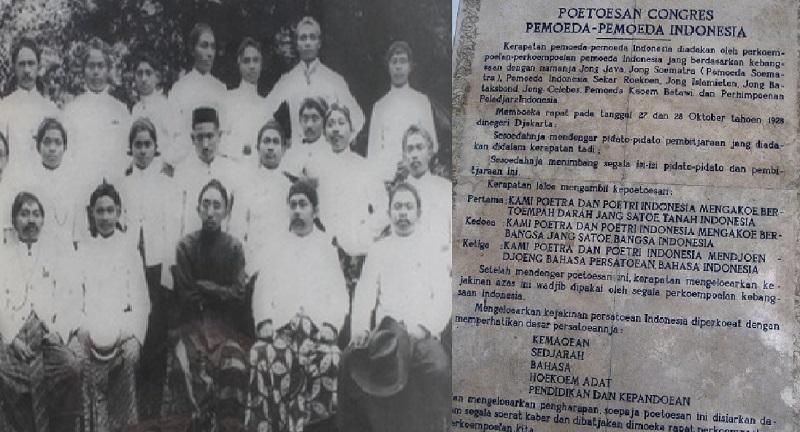 POETOESAN CONGRES
PEMOEDA-PEMOEDA INDONESIA
Kerapatan pemoeda-pemoeda Indonesia diadakan oleh perkoem-
poelan-perkoempoelan pemoeda Indonesia jang berdasarkan kebang-
saan dengan namanja Jong Java, Jong Soematra (Pemoeda Soema-
tra), Pemoeda Indonesia, Sekar Roekoen, Jong Islamieten, Jong Ba-
taksbond, Jong Celebes, Pemoeda Kaoem Betawi dan Perhimpoenan
Peladjar Indonesia
Memboeka rapat pada tanggal 27 dan 28 Oktober tahoen 1928
dinegeri Djakarta;
Sesoedahnja mendengar pidato-pidato pembitjaraan jang diada-
kan didalam kerapatan tadi;
Sesoedahnja menimbang segala isi-isi pidato-pidato dan pembi-
tjaraan ini.
Kerapatan laloe mengambil kepoetoesan:
Pertama: KAMI POETRA DAN POETRI INDONESIA MENGAKOE BER-
TOEMPAH DARAH JANG SATOE, TANAH INDONESIA
Kedoea: KAMI POETRA DAN POETRI INDONESIA MENGAKOE BER-
BANGSA JANG SATOE, BANGSA INDONESIA
Ketiga: KAMI POETRA DAN POETRI INDONESIA MENDJOEN-
DJOENG BAHASA PERSATOEAN, BAHASA INDONESIA
Setelah mendengar poetoesan ini, kerapatan mengeloearkan ke-
jakinan azas ini wadjib dipakai oleh segala perkoempoelan kebang-
saan Indonesia.
Mengeloearkan kejakinan persatoean Indonesia diperkoeat dengan
memperhatikan dasar persatoeannja:
KEMAOEAN
SEDJARAH
BAHASA
HOEKOEM ADAT
PENDIDIKAN DAN KEPANDOEAN
an mengeloearkan pengharapan, soepaja poetoesan ini disiarkan da-
m segala soerat kabar dan dibatjakan dimoeka rapat perkoempoe
erkoempoelan kita